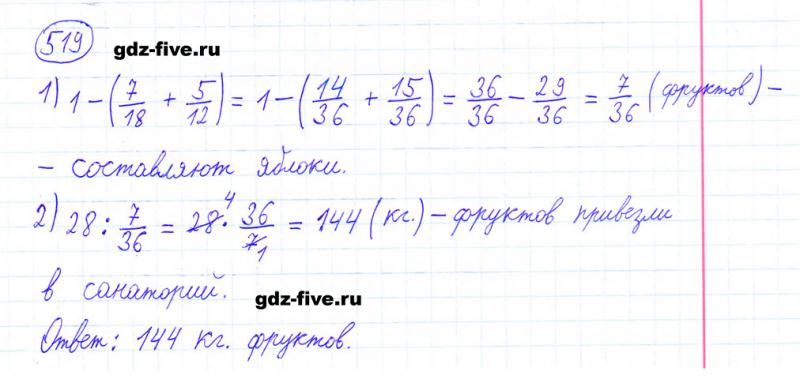 519
gdz-five.ru
1) 1 - (7/18 + 5/12) = 1 - (14/36 + 15/36) = 36/36 - 29/36 = 7/36 (фруктов) -
- составляют яблоки.
2) 28 : 7/36 = 28 4 · 36/7 1 = 144 (кг.) - фруктов привезли
в санаторий.
gdz-five.ru
Ответ: 144 кг. фруктов.